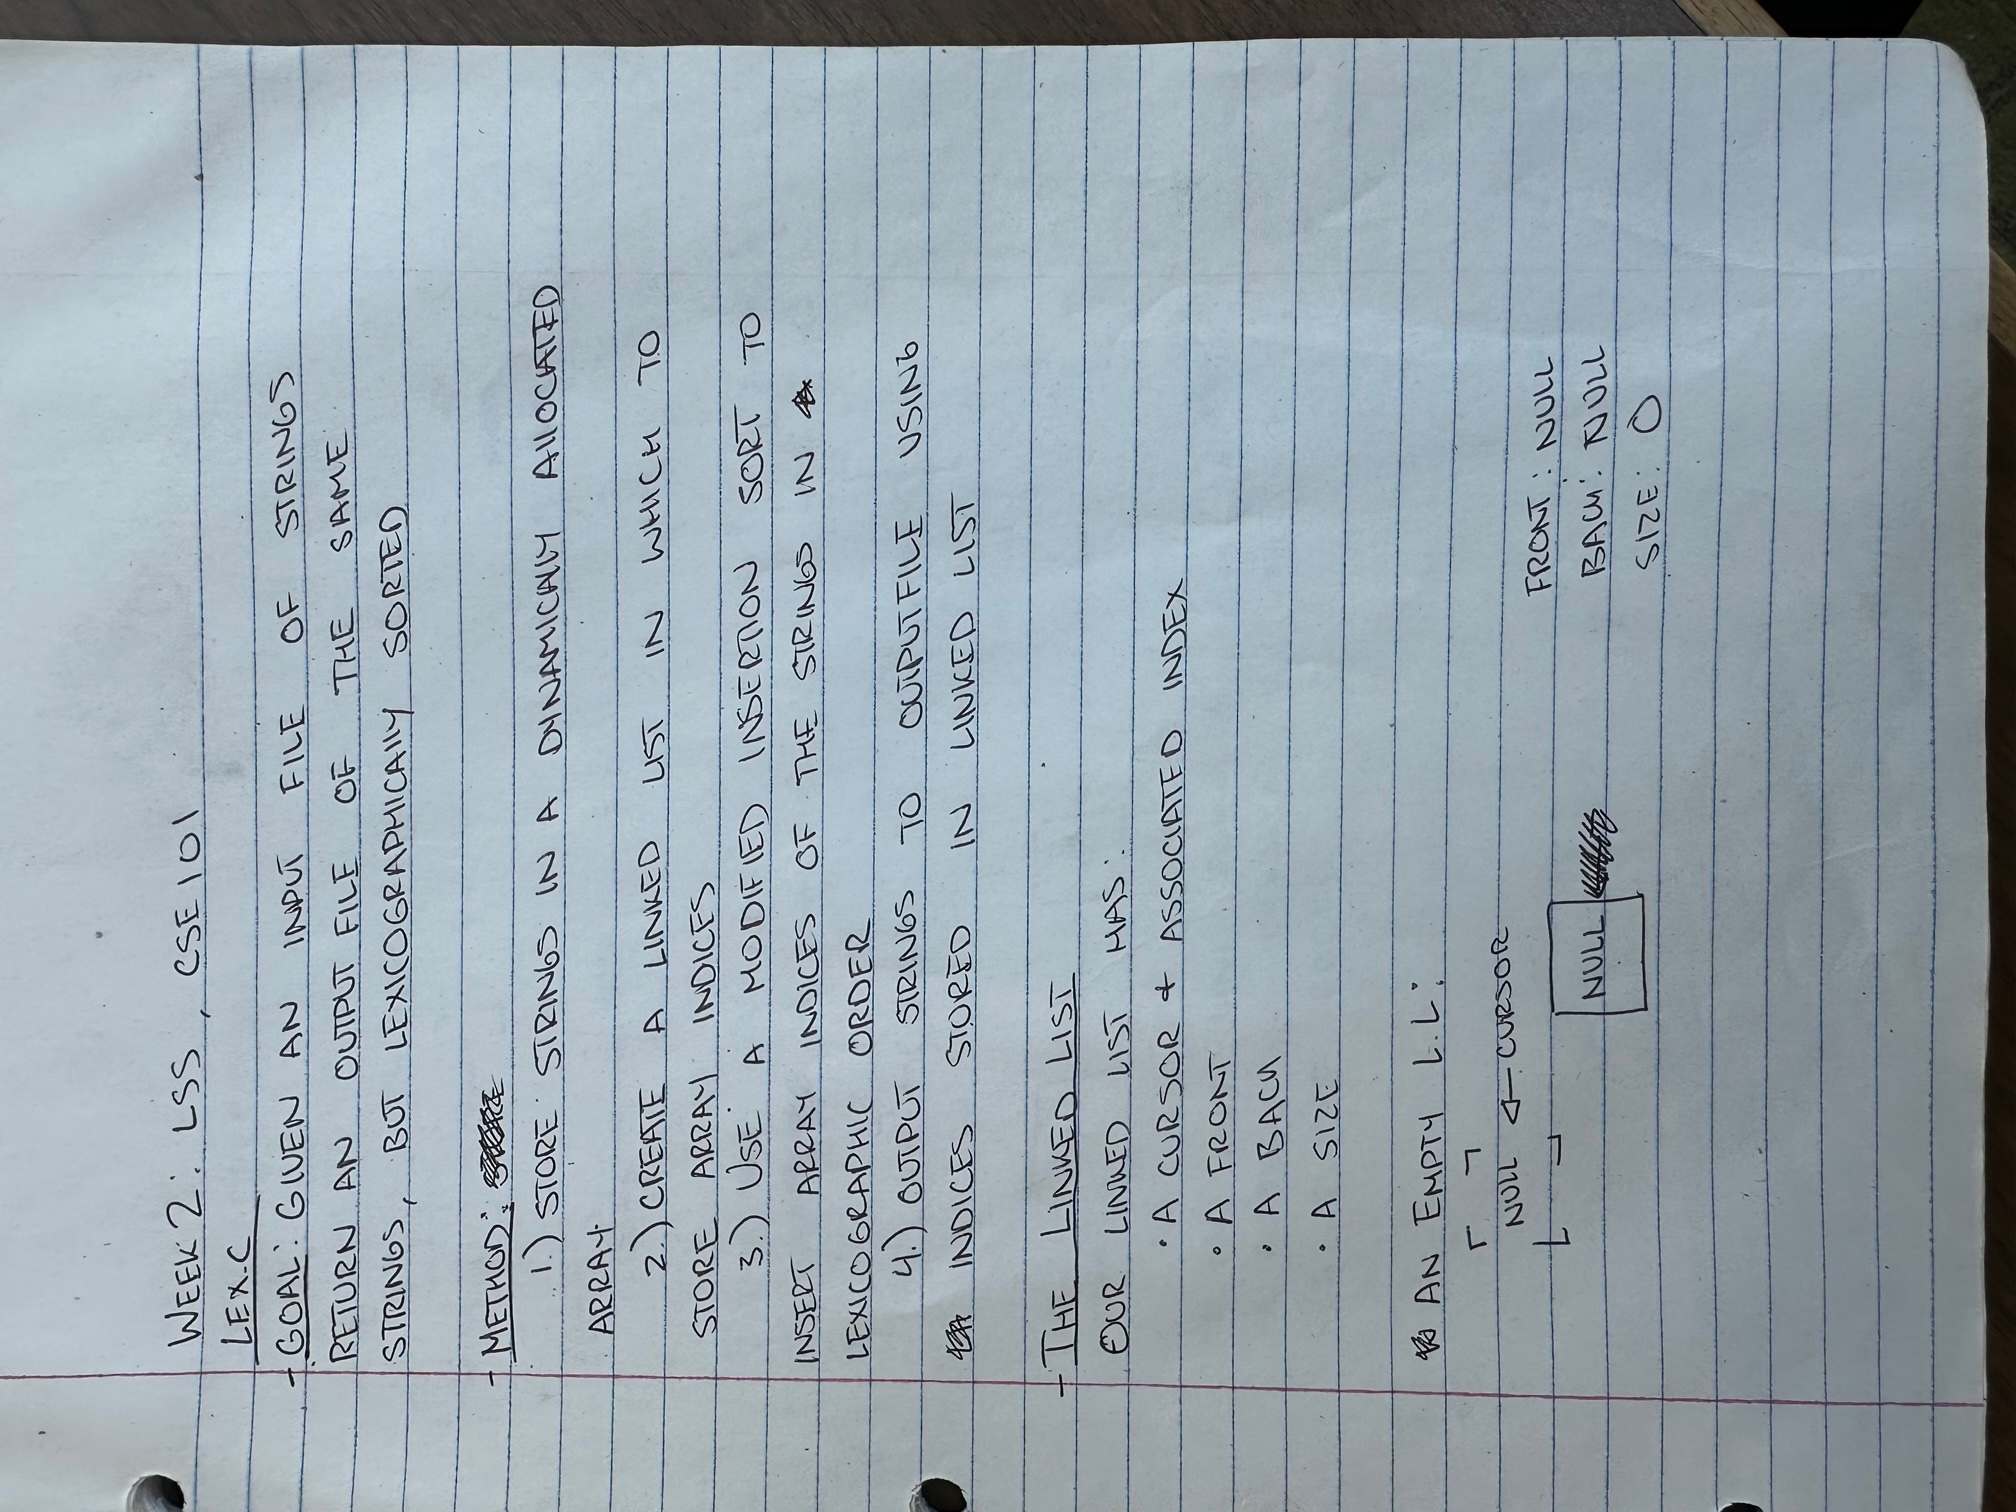 WEEK 2: LSS, CSE 101
LEX.C
- GOAL: GIVEN AN INPUT FILE OF STRINGS
RETURN AN OUTPUT FILE OF THE SAME
STRINGS, BUT LEXICOGRAPHICALLY SORTED
- METHOD:
1.) STORE STRINGS IN A DYNAMICALLY ALLOCATED
ARRAY
2.) CREATE A LINKED LIST IN WHICH TO
STORE ARRAY INDICES
3.) USE A MODIFIED INSERTION SORT TO
INSERT ARRAY INDICES OF THE STRINGS IN
LEXICOGRAPHIC ORDER
4.) OUTPUT STRINGS TO OUTPUTFILE USING
INDICES STORED IN LINKED LIST
- THE LINKED LIST
OUR LINKED LIST HAS:
• A CURSOR + ASSOCIATED INDEX
• A FRONT
• A BACK
• A SIZE
AN EMPTY L.L:
NULL ← CURSOR
NULL
FRONT: NULL
BACK: NULL
SIZE: 0